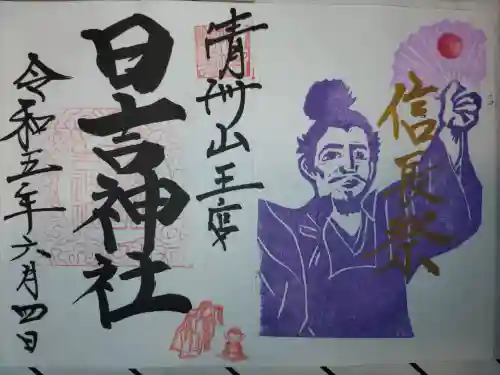 信長祭
清州山王宮
日吉神社
令和五年六月四日